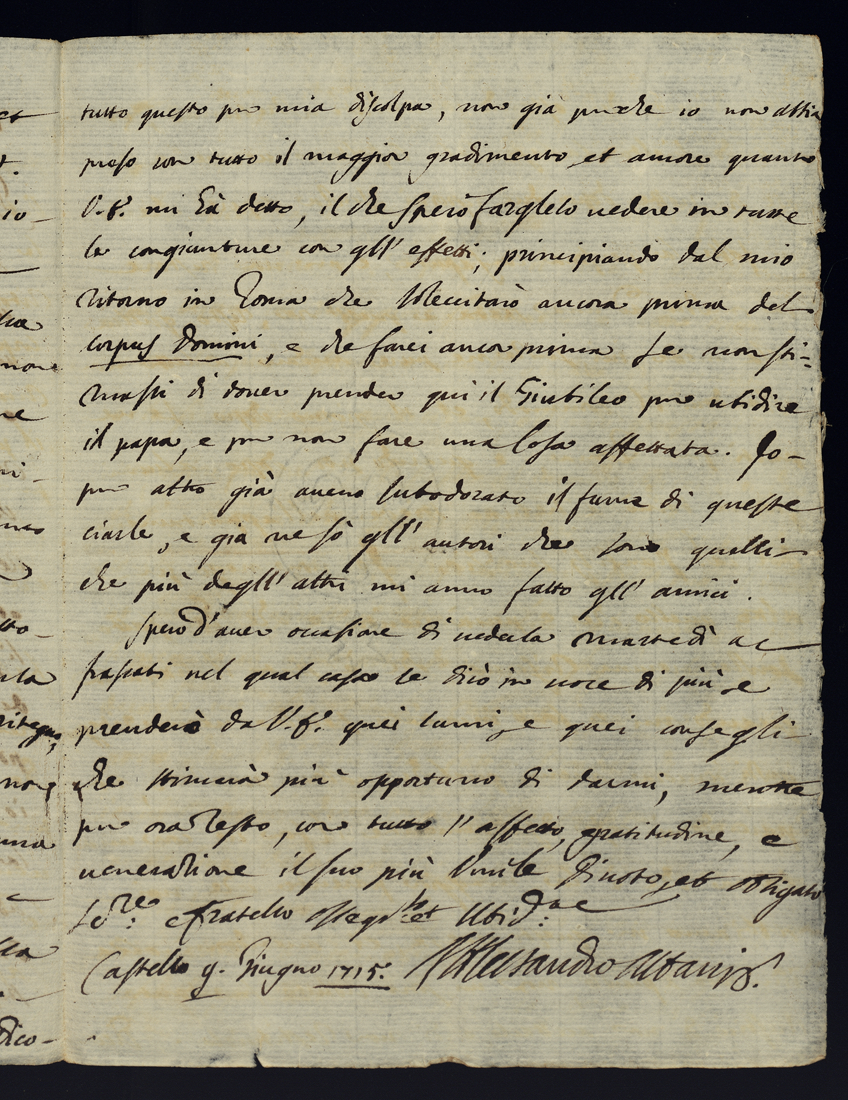 tutto questo per mia discolpa, non già perche io non abbia
preso con tutto il maggior gradimento, et amore quanto
V.E. mi hà detto, il che sperò farglielo vedere in tutte
le congiunture con gll' effetti; principiando dal mio
ritorno in Roma che sollecitarò ancora prima del
corpus Domini, e che farei ancor prima se non sti-
massi di dover prender qui il Giubileo per ubidire
il papa, e per non fare una Cosa affettata. Io
per altro già avevo subodorato il fumo di queste
ciarle, e già ne sò gll' autori che sono quelli
che più degll' altri mi anno fatto gll' amici.
Spero d'aver occasione di vederla martedì a
frascati nel qual caso le dirò in voce di più, e
prenderò da V.E. quei lumi, e quei consegli
che stimerà più opportuno di darmi, mentre
per ora Resto, con tutto l'affetto, gratitudine, e
venerazione il suo più Umile Divoto, et obligato
Ser.re e fratello et Ubid.
Castello 9. Giugno 1715. Alessandro Albani
none
ne
nza
Dico-